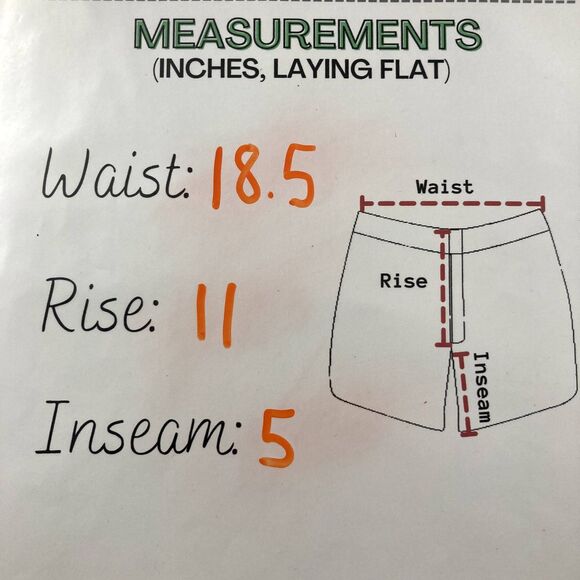 MEASUREMENTS
(INCHES, LAYING FLAT)
Waist: 18.5
Rise: 11
Inseam: 5
Waist
Rise
Inseam